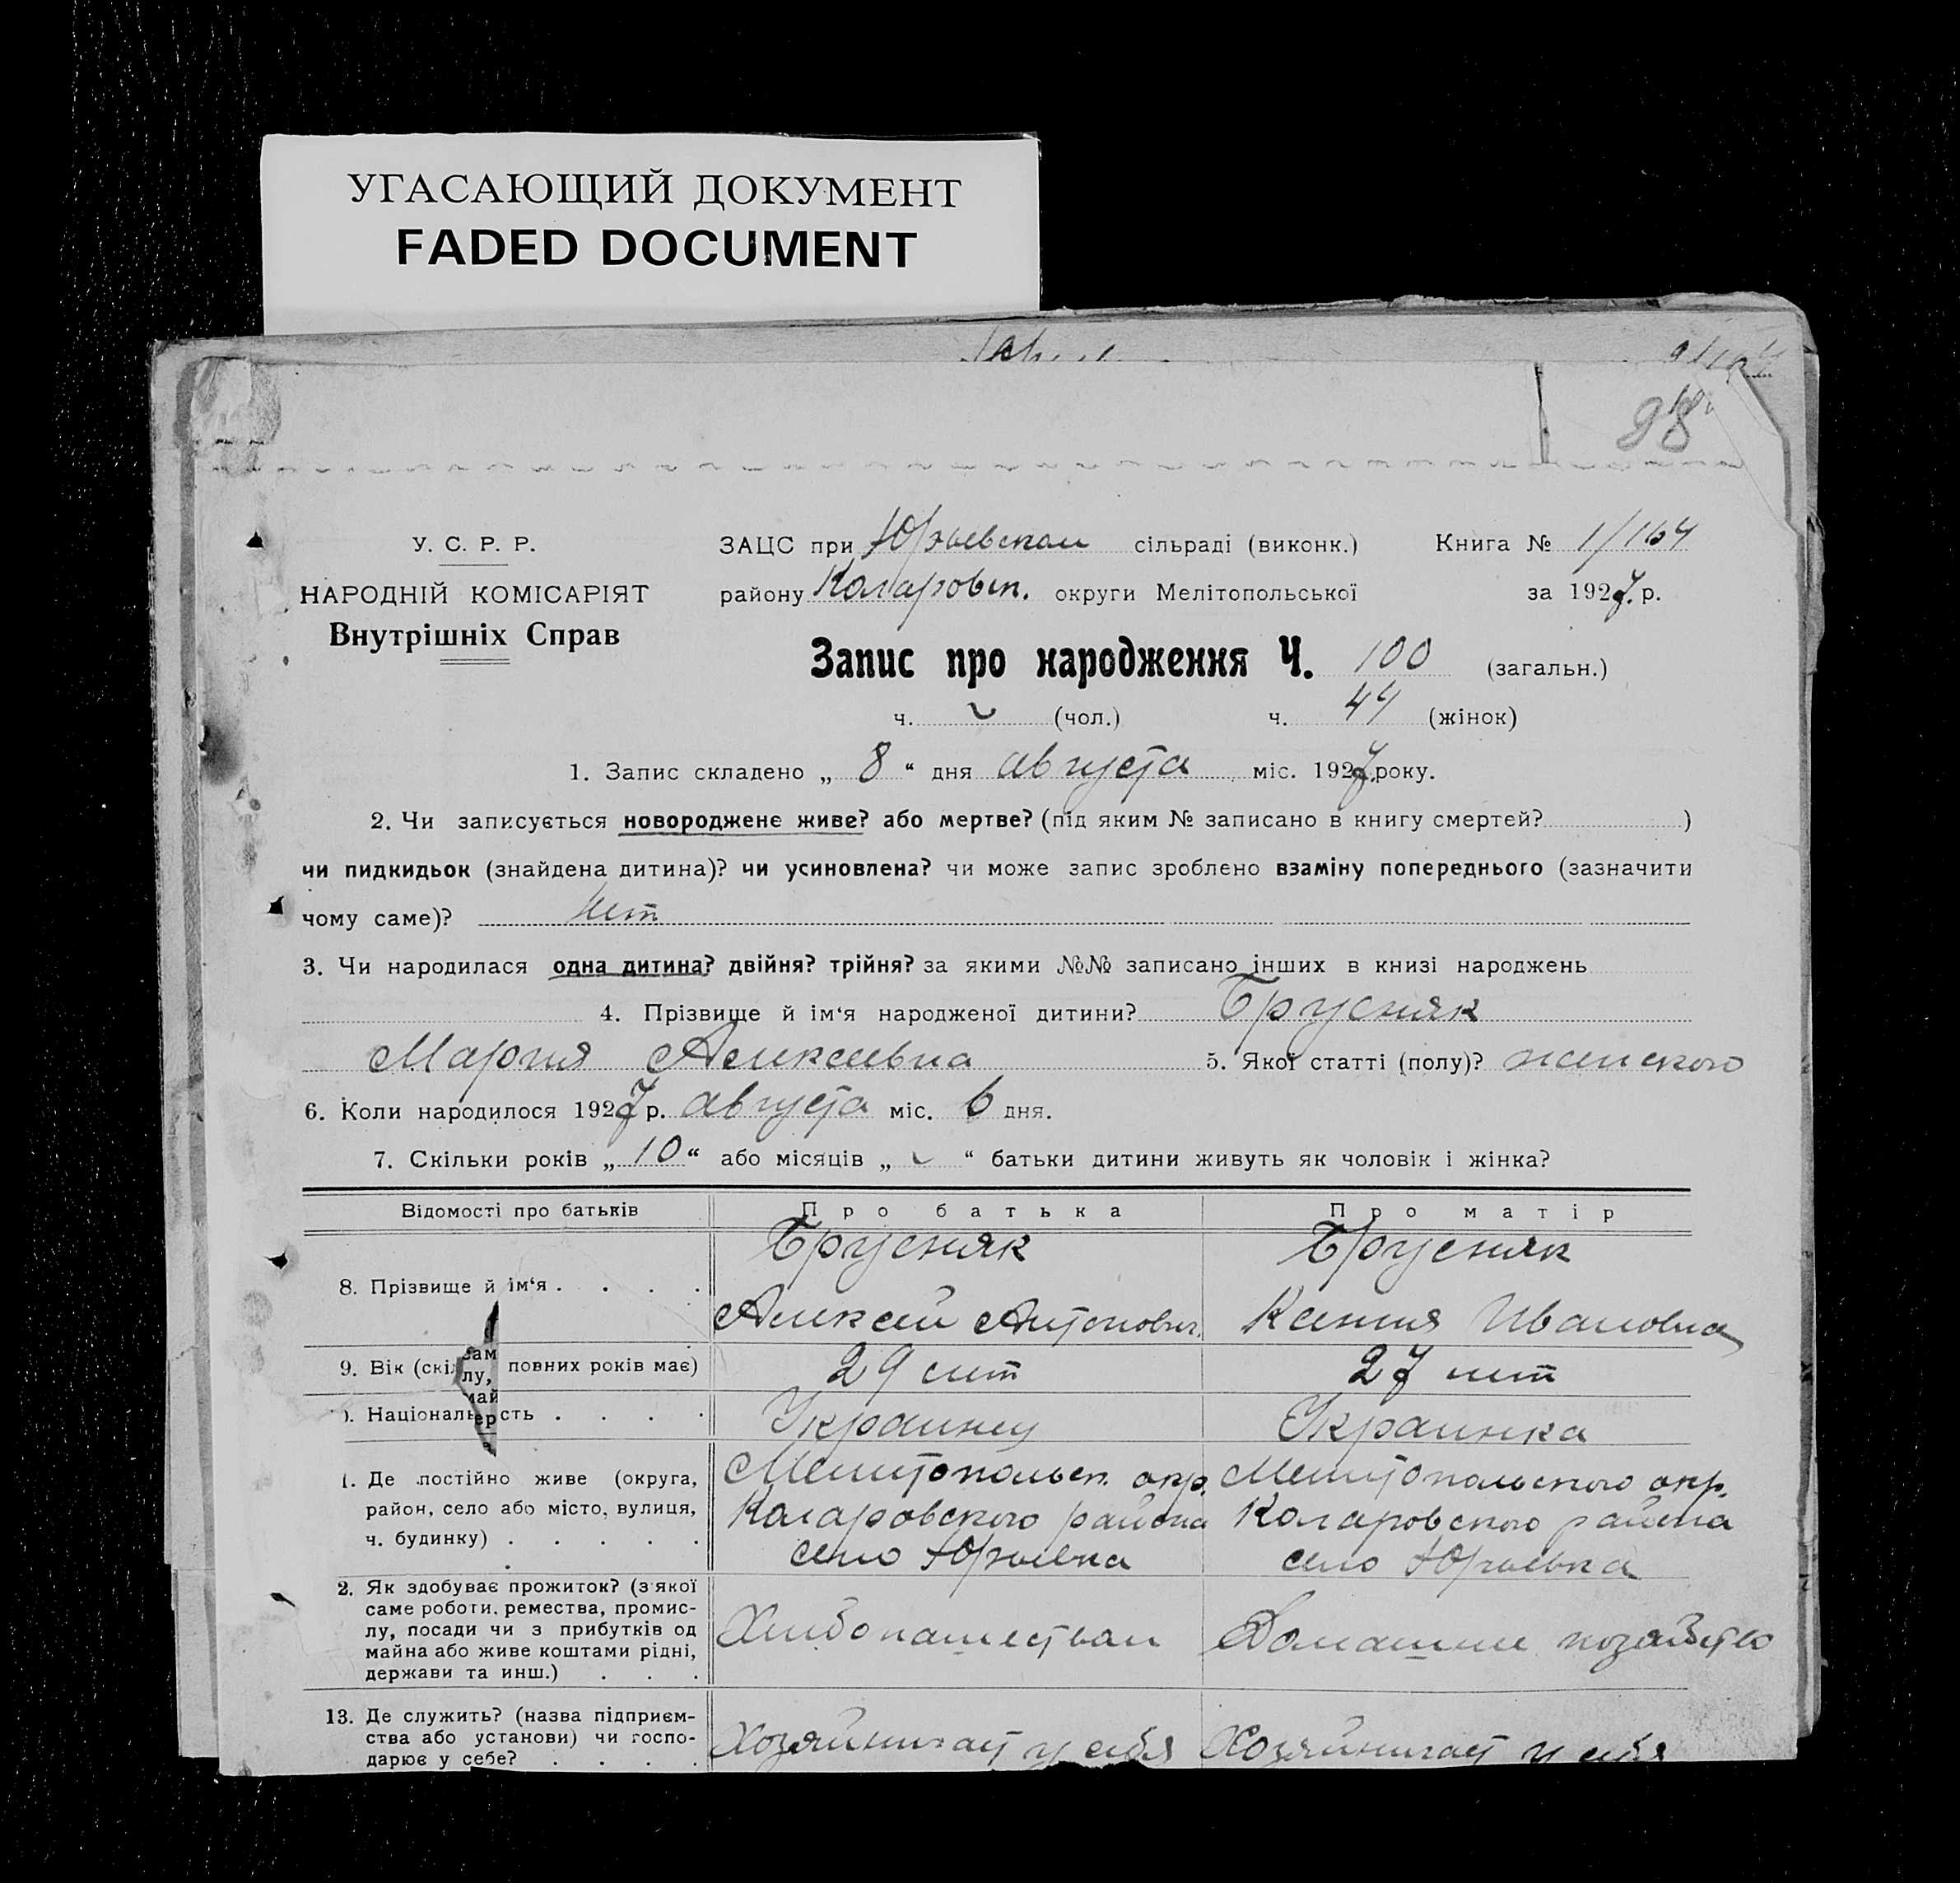 УГАСАЮЩИЙ ДОКУМЕНТ
FADED DOCUMENT
98
У. С. Р. Р.
НАРОДНІЙ КОМІСАРІЯТ
Внутрішніх Справ
ЗАЦС при Юрьевском сільраді (виконк.) Книга № 1/164
району Коларовск. округи Мелітопольської за 1927 р.
Запис про народження Ч. 100 (загальн.)
ч. (чол.) ч. 44 (жінок)
1. Запис складено „ 8 “ дня августа міс. 1927 року.
2. Чи записується новороджене живе? або мертве? (під яким № записано в книгу смертей? )
чи пидкидьок (знайдена дитина)? чи усиновлена? чи може запис зроблено взаміну попереднього (зазначити
чому саме)? Нет
3. Чи народилася одна дитина? двійня? трійня? за якими №№ записано інших в книзі народжень
4. Прізвище й ім‘я народженої дитини? Брусняк
Мария Алексеевна 5. Якої статті (полу)? женского
6. Коли народилося 1927 р. августа міс. 6 дня.
7. Скільки років „ 10 “ або місяців „ “ батьки дитини живуть як чоловік і жінка?
Відомості про батьків Про батька Про матір
8. Прізвище й ім‘я . . . . . Брусняк Брусняк
Алексей Антонович. Ксения Ивановна
9. Вік (скіл повних років має) 29 лет 27 лет
Національ сть . . . . Украинец Украинка
1. Де постійно живе (округа, район, село або місто, вулиця, ч. будинку) . . . . . Мелитопольск. окр. Мелитопольского окр.
Коларовского района Коларовского района
село Юрьевка село Юрьевка
2. Як здобуває прожиток? (з якої
саме роботи, ремества, промис-
лу, посади чи з прибутків од Хлебопашеством Домашнее хозяйство
майна або живе коштами рідні,
держави та инш.) . . .
13. Де служить? (назва підприєм-
ства або установи) чи госпо-
дарює у себе? . . . . Хозяйничает у себя Хозяйничает у себя